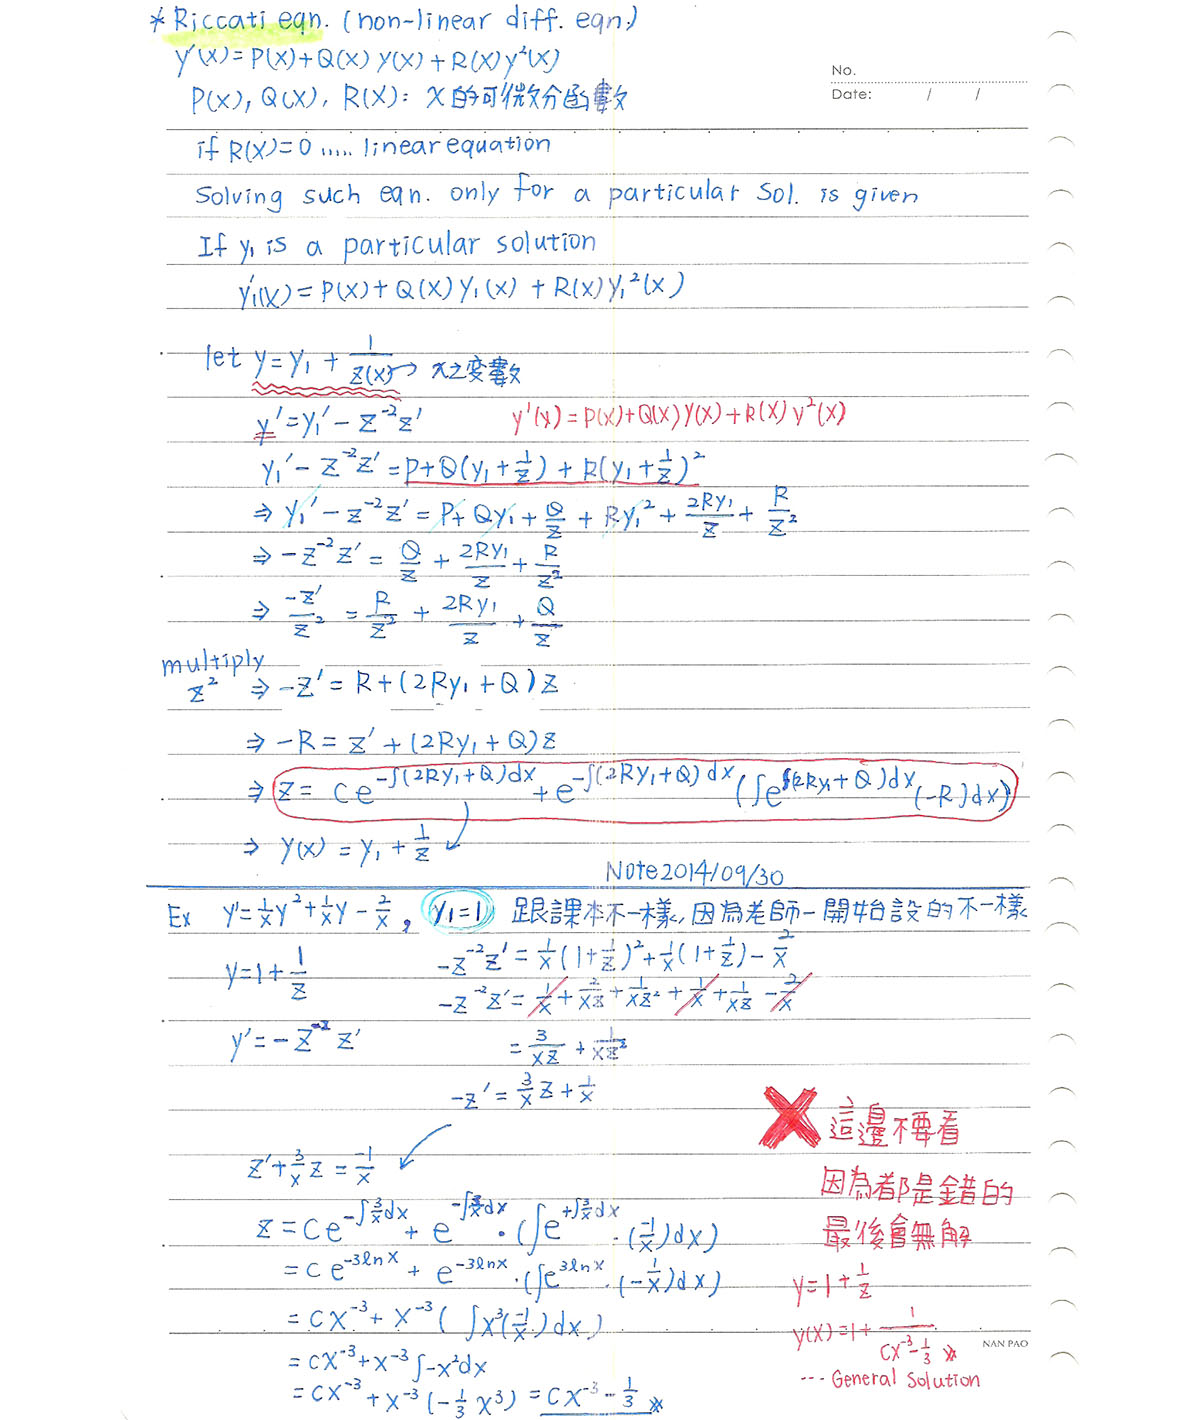 * Riccati eqn. (non-linear diff. eqn.)
y'(x) = P(x) + Q(x) y(x) + R(x) y²(x)
No.
Date: / /
P(x), Q(x), R(x): x的可微分函數
if R(x)=0 ..... linear equation
Solving such eqn. only for a particular Sol. is given
If y₁ is a particular solution
y₁'(x) = P(x) + Q(x) y₁(x) + R(x) y₁²(x)
let y = y₁ + 1/Z(x) → x之變數
y' = y₁' - z⁻² z'
y'(x) = P(x) + Q(x) y(x) + R(x) y²(x)
y₁' - z⁻²z' = P + Q(y₁ + 1/z) + R(y₁ + 1/z)²
⇒ y₁' - z⁻²z' = P + Qy₁ + Q/z + Ry₁² + 2Ry₁/z + R/z²
⇒ -z⁻²z' = Q/z + 2Ry₁/z + R/z²
⇒ -z'/z² = R/z² + 2Ry₁/z + Q/z
multiply
z² ⇒ -z' = R + (2Ry₁ + Q)z
⇒ -R = z' + (2Ry₁ + Q)z
⇒ z = ce^(-∫(2Ry₁+Q)dx) + e^(-∫(2Ry₁+Q)dx) (∫e^(∫(2Ry₁+Q)dx) (-R)dx)
⇒ y(x) = y₁ + 1/z
Note 2014/09/30
Ex y' = 1/x y² + 1/x y - 2/x, y₁=1 跟課本不一樣,因為老師一開始設的不一樣
y = 1 + 1/z
-z⁻²z' = 1/x (1+1/z)² + 1/x (1+1/z) - 2/x
-z⁻²z' = 1/x + 2/xz + 1/xz² + 1/x + 1/xz - 2/x
y' = -z⁻² z'
= 3/xz + 1/xz²
-z' = 3/x z + 1/x
z' + 3/x z = -1/x
z = ce^(-∫3/x dx) + e^(-∫3/x dx) · (∫e^(+∫3/x dx) · (-1/x)dx)
= c e^(-3lnx) + e^(-3lnx) · (∫e^(3lnx) · (-1/x)dx)
= cx⁻³ + x⁻³ (∫x³(-1/x)dx)
= cx⁻³ + x⁻³ ∫-x²dx
= cx⁻³ + x⁻³ (-1/3 x³) = cx⁻³ - 1/3 ※
✗ 這邊不要看
因為都是錯的
最後會無解
y = 1 + 1/z
y(x) = 1 + 1/(cx⁻³ - 1/3) ※
--- General Solution
NAN PAO